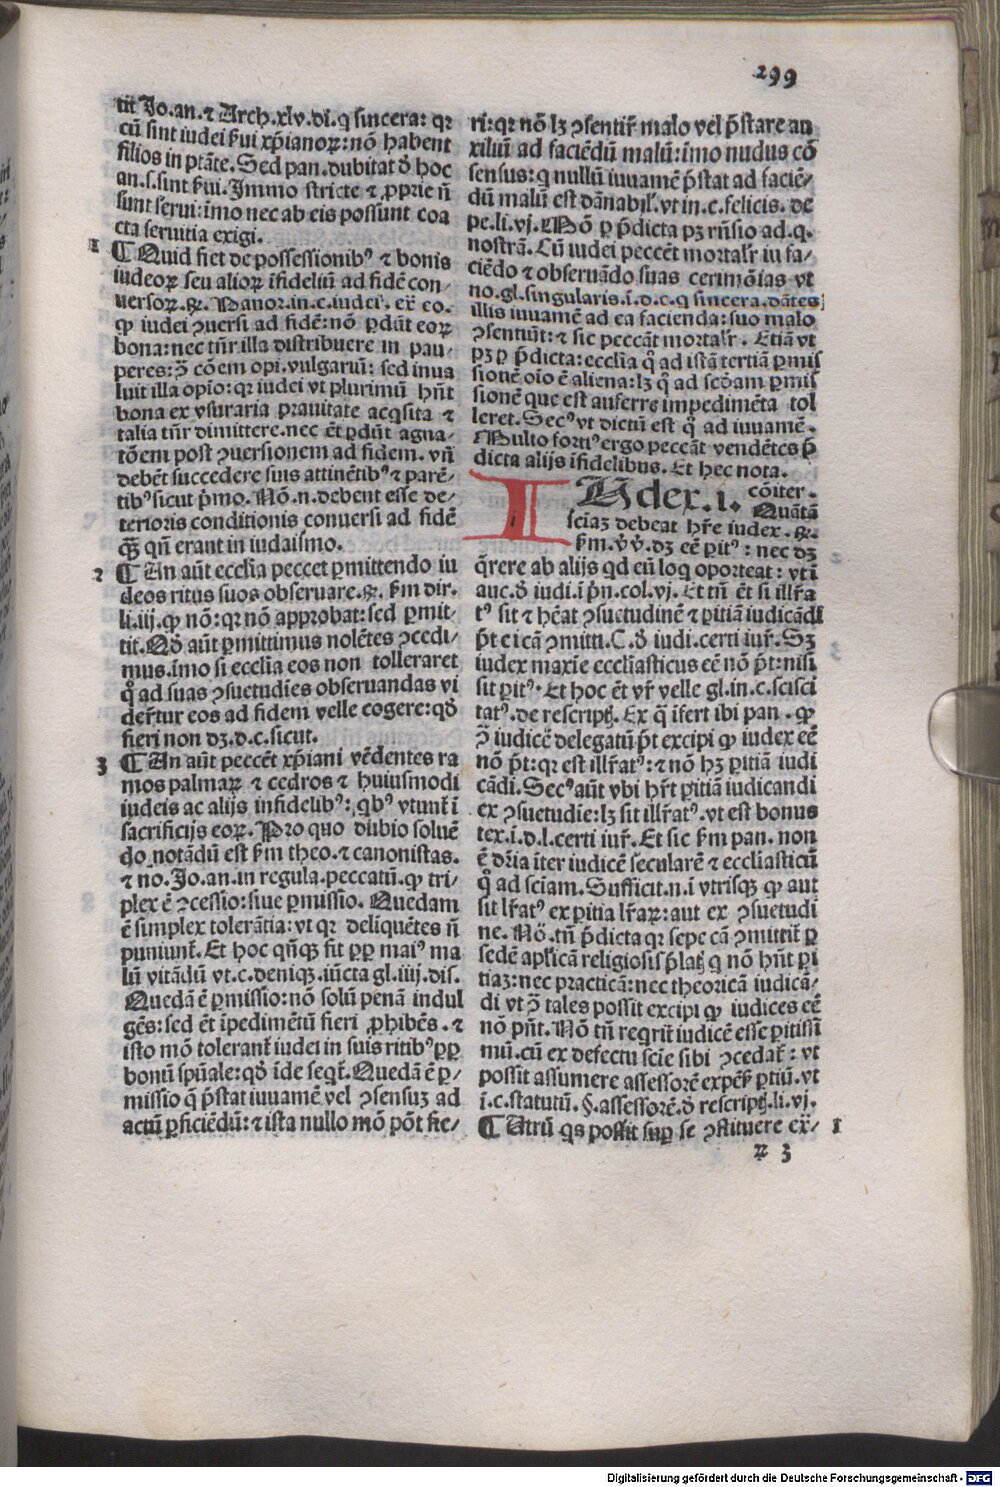 299
tit Jo.an.⁊ Arch.xlv.di.q sincera: qꝛ
cũ sint iudei ẜui xp̃ianoꝝ: nõ habent
filios in ptãte. Sed pan. dubitat ð hoc
an.s.sint ẜui. Immo stricte ⁊ ꝓprie ñ
sunt serui: imo nec ab eis possunt coa
cta seruitia exigi.
1 ¶ Quid fiet de possessionibꝰ ⁊ bonis
iudeoꝝ seu alioꝝ ĩfideliũ ad fidẽ con-
uersoꝝ.℟. Panor.in.c.iudei. ex̃ eo.
ꝙ iudei ꝯuersi ad fidẽ: nõ ꝑdũt eoꝝ
bona: nec tñr illa distribuere in pau-
peres: ꝯ̃ cõem opi. vulgariũ: sed inua
luit illa opio: qꝛ iudei vt plurimũ hñt
bona ex vsuraria prauitate acq̃sita ⁊
talia tñr dimittere. nec ẽt ꝑdũt agna-
tõem post ꝯuersionem ad fidem. vñ
debẽt succedere suis attinẽtibꝰ ⁊ parẽ-
tibꝰ sicut p̃mo. Nõ.n.debent esse de-
terioris conditionis conuersi ad fidẽ
q̃ꝫ qñ erant in iudaismo.
2 ¶ An aũt ecclĩa peccet ꝑmittendo iu
deos ritus suos obseruare.℟. ẜm dir.
li.iij. ꝙ nõ: qꝛ nõ approbat: sed ꝑmit-
tit. Qð aũt ꝑmittimus nolẽtes ꝯcedi-
mus. imo si ecclĩa eos non tolleraret
q̊ ad suas ꝯsuetudĩes obseruandas vi
der̃tur eos ad fidem velle cogere: qð
fieri non dꝫ.d.c.sicut.
3 ¶ An aũt peccẽt xp̃iani vẽdentes ra
mos palmaꝝ ⁊ cedros ⁊ huiusmodi
iudeis ac alijs infidelibꝰ: qbꝰ vtunt̃ ĩ
sacrificijs eoꝝ. Pro quo dubio soluẽ
do notãdũ est ẜm theo.⁊ canonistas.
⁊ no. Jo.an.in regula.peccatũ.ꝙ tri-
plex ẽ ꝯcessio: siue ꝑmissio. Quedam
ẽ simplex tolerãtia: vt qꝛ delĩquẽtes ñ
puniunt̃. Et hoc qñqꝫ fit ꝓp̃ maiꝰ ma
lũ vitãdũ vt.c.deniqꝫ.iũcta gl.iiij.dis.
Quedã ẽ ꝑmissio: nõ solũ penã indul
gẽs: sed ẽt ĩpedimẽtũ fieri ꝓhibẽs.⁊
isto mõ tolerant̃ iudei in suis ritibꝰ ꝓp̃
bonũ sp̃uale: qð ĩde seqt̃. Quedã ẽ ꝑ-
missio q̃ p̃stat iuuamẽ vel ꝯsensuꝫ ad
actũ ꝑficiẽdũ: ⁊ ista nullo mõ põt fie-
ri: qꝛ nõ lꝫ ꝯsentir̃ malo vel p̃stare au
xiliũ ad faciẽdũ malũ: imo nudus cõ
sensus: q nullũ iuuamẽ p̃stat ad faciẽ-
dũ malũ est dãnabil̓. vt in.c.felicis. de
pe.li.vj. Nõ ꝑ p̃dicta pꝫ rñsio ad.q.
nostrã. Cũ iudei peccẽt mortal̓r iu fa-
ciẽdo ⁊ obseruãdo suas cerimõias vt
no.gl.singularis.ĩ.d.c.q sincera.dãtes
illis iuuamẽ ad ea facienda: suo malo
ꝯsentiũt: ⁊ sic peccãt mortal̓r. Etiã vt
pꝫ ꝑ p̃dicta: ecclĩa q̊ ad istã tertiã ꝑmis
sionẽ oĩo ẽ aliena: lꝫ q̊ ad scðam ꝑmis
sionẽ que est auferre impedimẽta tol
leret. Secꝰ vt dictũ est q̊ ad iuuamẽ.
Multo fortiꝰ ergo peccãt vendẽtes p̃
dicta alijs ĩfidelibus. Et hec nota.
IUdex.i. cõiter.
Quãtã
sciaꝫ debeat hr̃e iudex.℟.
ẜm.v̓v̓.dꝫ eẽ ꝑitꝰ: nec dꝫ
q̃rere ab alijs qd eũ loq oporteat: vt ĩ
auc.ð iudi.ĩ p̃n.col.vj. Et tñ ẽt si illr̃a
tꝰ sit ⁊ hẽat ꝯsuetudinẽ ⁊ ꝑitiã iudicãdi
p̃t ei cã ꝯmitti.C.ð iudi.certi iur̃. Sꝫ
iudex maxĩe ecclĩasticus eẽ nõ p̃t: nisi
sit ꝑitꝰ. Et hoc ẽt vr̃ velle gl.in.c.scisci
tatꝰ.de rescript̃. Ex q̃ ĩfert ibi pan. ꝙ
ꝯ̃ iudicẽ delegatũ p̃t excipi ꝙ iudex eẽ
nõ p̃t: qꝛ est illr̃atꝰ: ⁊ nõ hꝫ ꝑitiã iudi
cãdi. Secꝰ aũt vbi hr̃t ꝑitiã iudicandi
ex ꝯsuetudĩe: lꝫ sit illr̃atꝰ. vt est bonus
tex.ĩ.d.l.certi iur̃. Et sic ẜm pan. non
ẽ dr̃ia ĩter iudicẽ secularẽ ⁊ ecclĩasticũ
q̊ ad sciam. Sufficit.n.ĩ vtrisqꝫ ꝙ aut
sit lr̃atꝰ ex ꝑitia lr̃aꝝ: aut ex ꝯsuetudi
ne. Nõ.tñ p̃dicta qꝛ sepe cã ꝯmittit̃ ꝑ
sedẽ apl̓icã religiosis p̃lat̃ q nõ hñt ꝑi
tiaꝫ: nec practicã: nec theoricã iudicã-
di vt ꝯ̃ tales possit excipi ꝙ iudices eẽ
nõ pñt. Nõ tñ reqrit̃ iudicẽ esse ꝑitissi
mũ. cũ ex defectu scĩe sibi ꝯcedat̃: vt
possit assumere assessorẽ expẽs̃ ꝑtiũ. vt
ĩ.c.statutũ.§.assessorẽ.ð rescript̃.li.vj.
¶ Utrũ qs possit suꝑ se ꝯstituere ex- 1
ꝶ 3
Digitalisierung gefördert durch die Deutsche Forschungsgemeinschaft - DFG